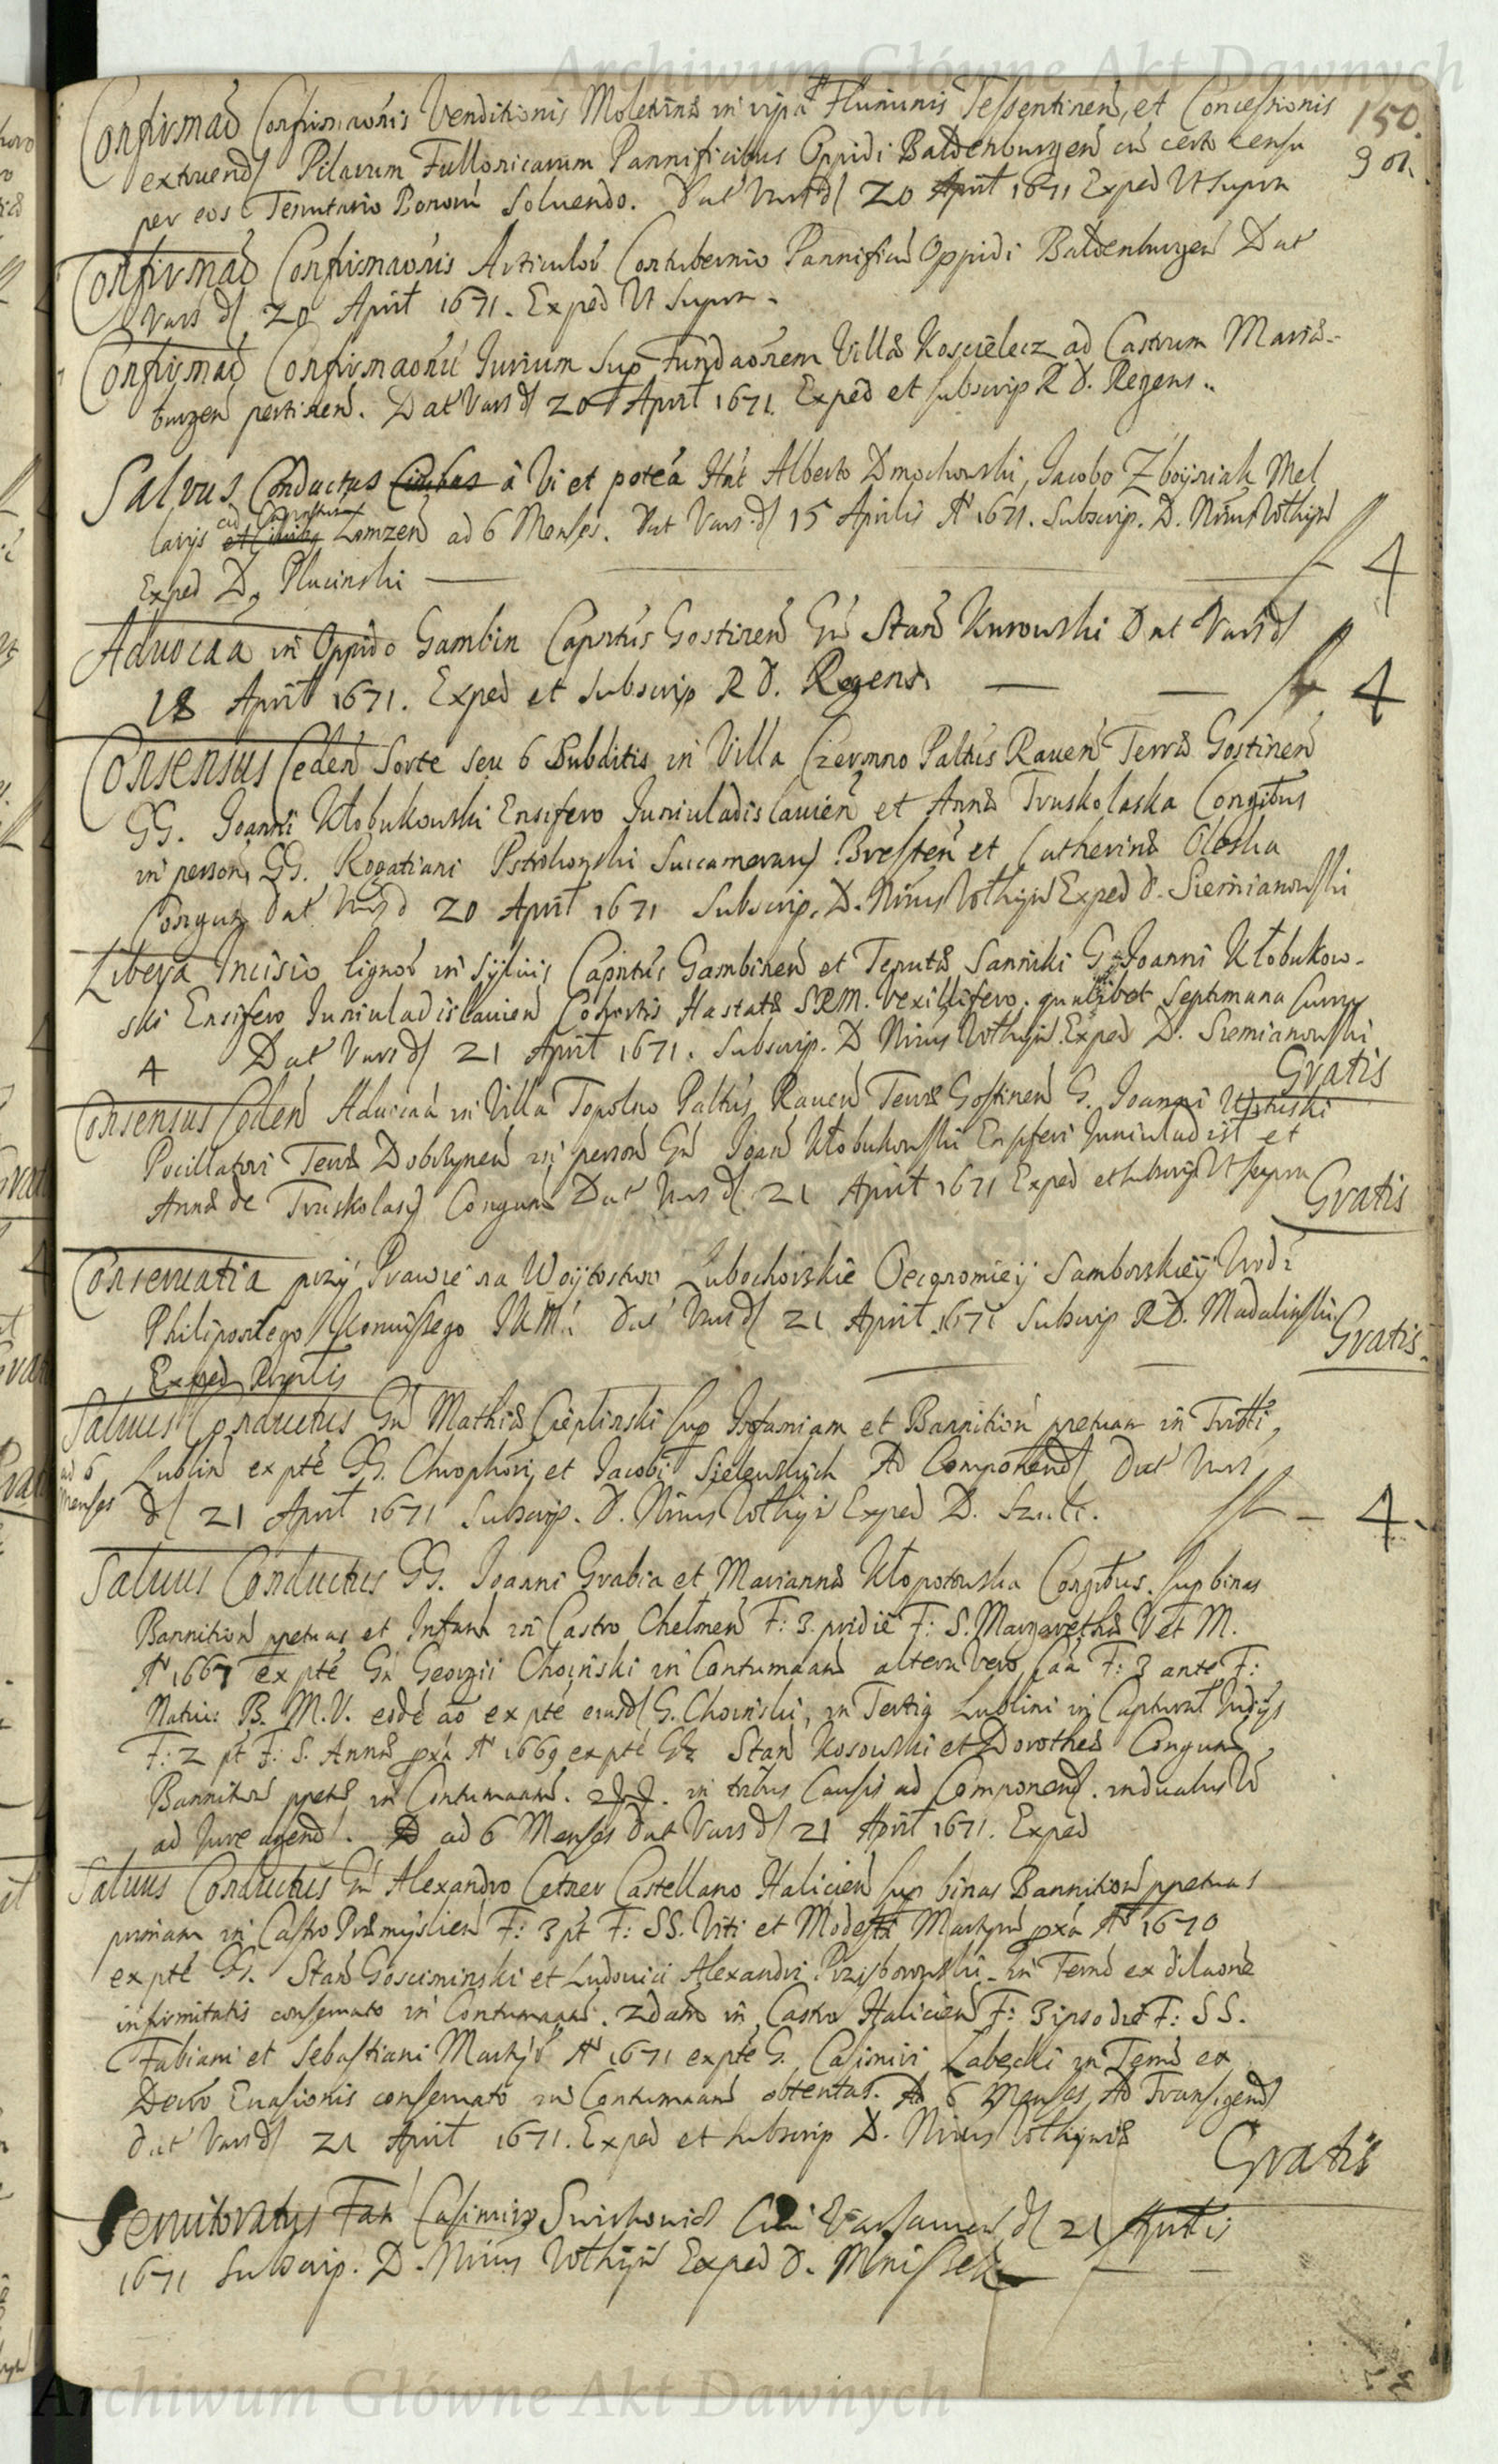 Archiwum Główne Akt Dawnych
150.
301.
Confirmaō Confirmaōnis Venditionis Molendinæ in ripa Fluminis Tessentinen, et Concessionis
extruend Pilarum Fullonicarum Pannificibus Oppidi Baldenburgen cū certo censu
per eos Tenutario Bonorū Soluendo. Dat Vars d 20 April 1671 Exped Ut Supra
Confirmaō Confirmaōnis Articulor Contubernio Pannificū Oppidi Baldenburgen Dat
Vars d 20 April 1671. Exped Ut Supra.
Confirmaō Confirmaōnū Jurium Sup Fundaōrem Villæ Koscielecz ad Castrum Mariæ-
burgen pertinen. Dat Vars d 20 April 1671. Exped et subscrip R D. Regens.
Salvus Conductus à Vi et poteā Hnt Alberto Dmochowski, Jacobo Zboyniak Mel
larijs Lomzen ad 6 Menses. Dat Vars. d 15 Aprilis A 1671. Subscrip. D. Nrius Wolhyn
Exped D. Plucinski — f 4
Aduocāa in Oppido Gambin Capntūs Gostinen Gn Stan Kurowski Dat Vars d
18 April 1671. Exped et subscrip R D. Regens. — — f 4
Consensus Ceden Sorte seu 6 Subditis in Villa Czermno Paltūs Rauen Terræ Gostinen
GG. Joanni Kłobukowski Ensifero Juniuladislauien et Annæ Truskolaska Congibus
in person GG. Rogatiani Pstrokonski Succamerarij Bresten et Catherinæ Oleska
Congum dat Vars d 20 April 1671 Subscrip. D. Nrius Wolhyn Exped D. Siemianowski
Libera Incisio lignor in Syluis Capntūs Gambinen et Tenutæ Sanniki G. Joanni Kłobukow-
ski Ensifero Juniuladislauien Cohortis Hastatæ SRM. Vexillifero. qualibet Septimana
4 Dat Vars d 21 April 1671. Subscrip. D Nrius Wolhyn. Exped D. Siemianowski
Gratis
Consensus Ceden Aduocāa in Villa Topolno Paltūs Rauen Terræ Gostinen G. Joanni
Pocillatori Terræ Dobrzynen in person Gn Joan Kłobukowski Ensiferi Juniuladisl et
Annæ de Truskolasy Congum Dat Vars d 21 April 1671 Exped et subscrip Ut supra
Gratis
Conseruatia przÿ Prawie na Woÿtostwo Lubochorskie Oeconomieÿ Samborskieÿ Urodz
Philiposkiego JKM. Dat Vars d 21 April 1671 Subscrip RD. Madalinski
Gratis.
Exped
Saluus Conductus Gn Mathiæ Cieplinski sup Infamiam et Bannition ppetuam in Tribli
ad 6 Menses
Lublin ex pte GG. Chrophori et Jacobi Sielewskich Ad Componend Dat Vars
d 21 April 1671 Subscrip. D. Nrius Wolhyn Exped D. f - 4.
Saluus Conductus GG. Joanni Grabia et Mariannæ Kłopotowska Congibus. sup binas
Bannition ppetuas et Infam in Castro Chelmen F: 3. pridie F: S. Margarethæ V et M.
A 1667 ex pte Gn Georgii Choinski in Contumaam altera vero F: 3 ante F:
Natiu: B. M. V. eode ao ex pte eiusd G. Choinski, in Tertia Lublini in Captural Judijs
F: 2 pt F: S. Annæ pxa A 1669 ex pte GG Stan Kosowski et Dorotheæ Congum
Bannition ppetuæ in Contumaam. in tribus Causis ad Componend. in duabus
ad Jure agend. ad 6 Menses dat Vars d 21 April 1671. Exped
Saluus Conductus Gn Alexandro Cetner Castellano Halicien sup binas Bannition ppetuas
primam in Castro Præmyslien F: 3 pt F: SS. Viti et Modesti Martyrū pxa A 1670
ex pte GG. Stan Gosciminski et Ludouici Alexandri in Termō ex dilaone
infirmitatis conseruato in Contumaam. 2dam in Castro Halicien F: 3 ipso die F: SS.
Fabiani et Sebastiani Martyr A 1671 ex pte G. Casimiri Labęcki in Termō ex
Decreto Euasionis conseruato in Contumaam obtentas. Ad 6 Menses Ad Transigend
dat Vars d 21 April 1671. Exped et subscrip D. Nrius Wolhyniæ
Gratis
Seruitoratus Fam Casimiro Swirkowicz Ciui Varsauien d 21 Aprilis
1671 Subscrip. D. Nrius Wolhyn Exped D. Mniszek — —
Archiwum Główne Akt Dawnych